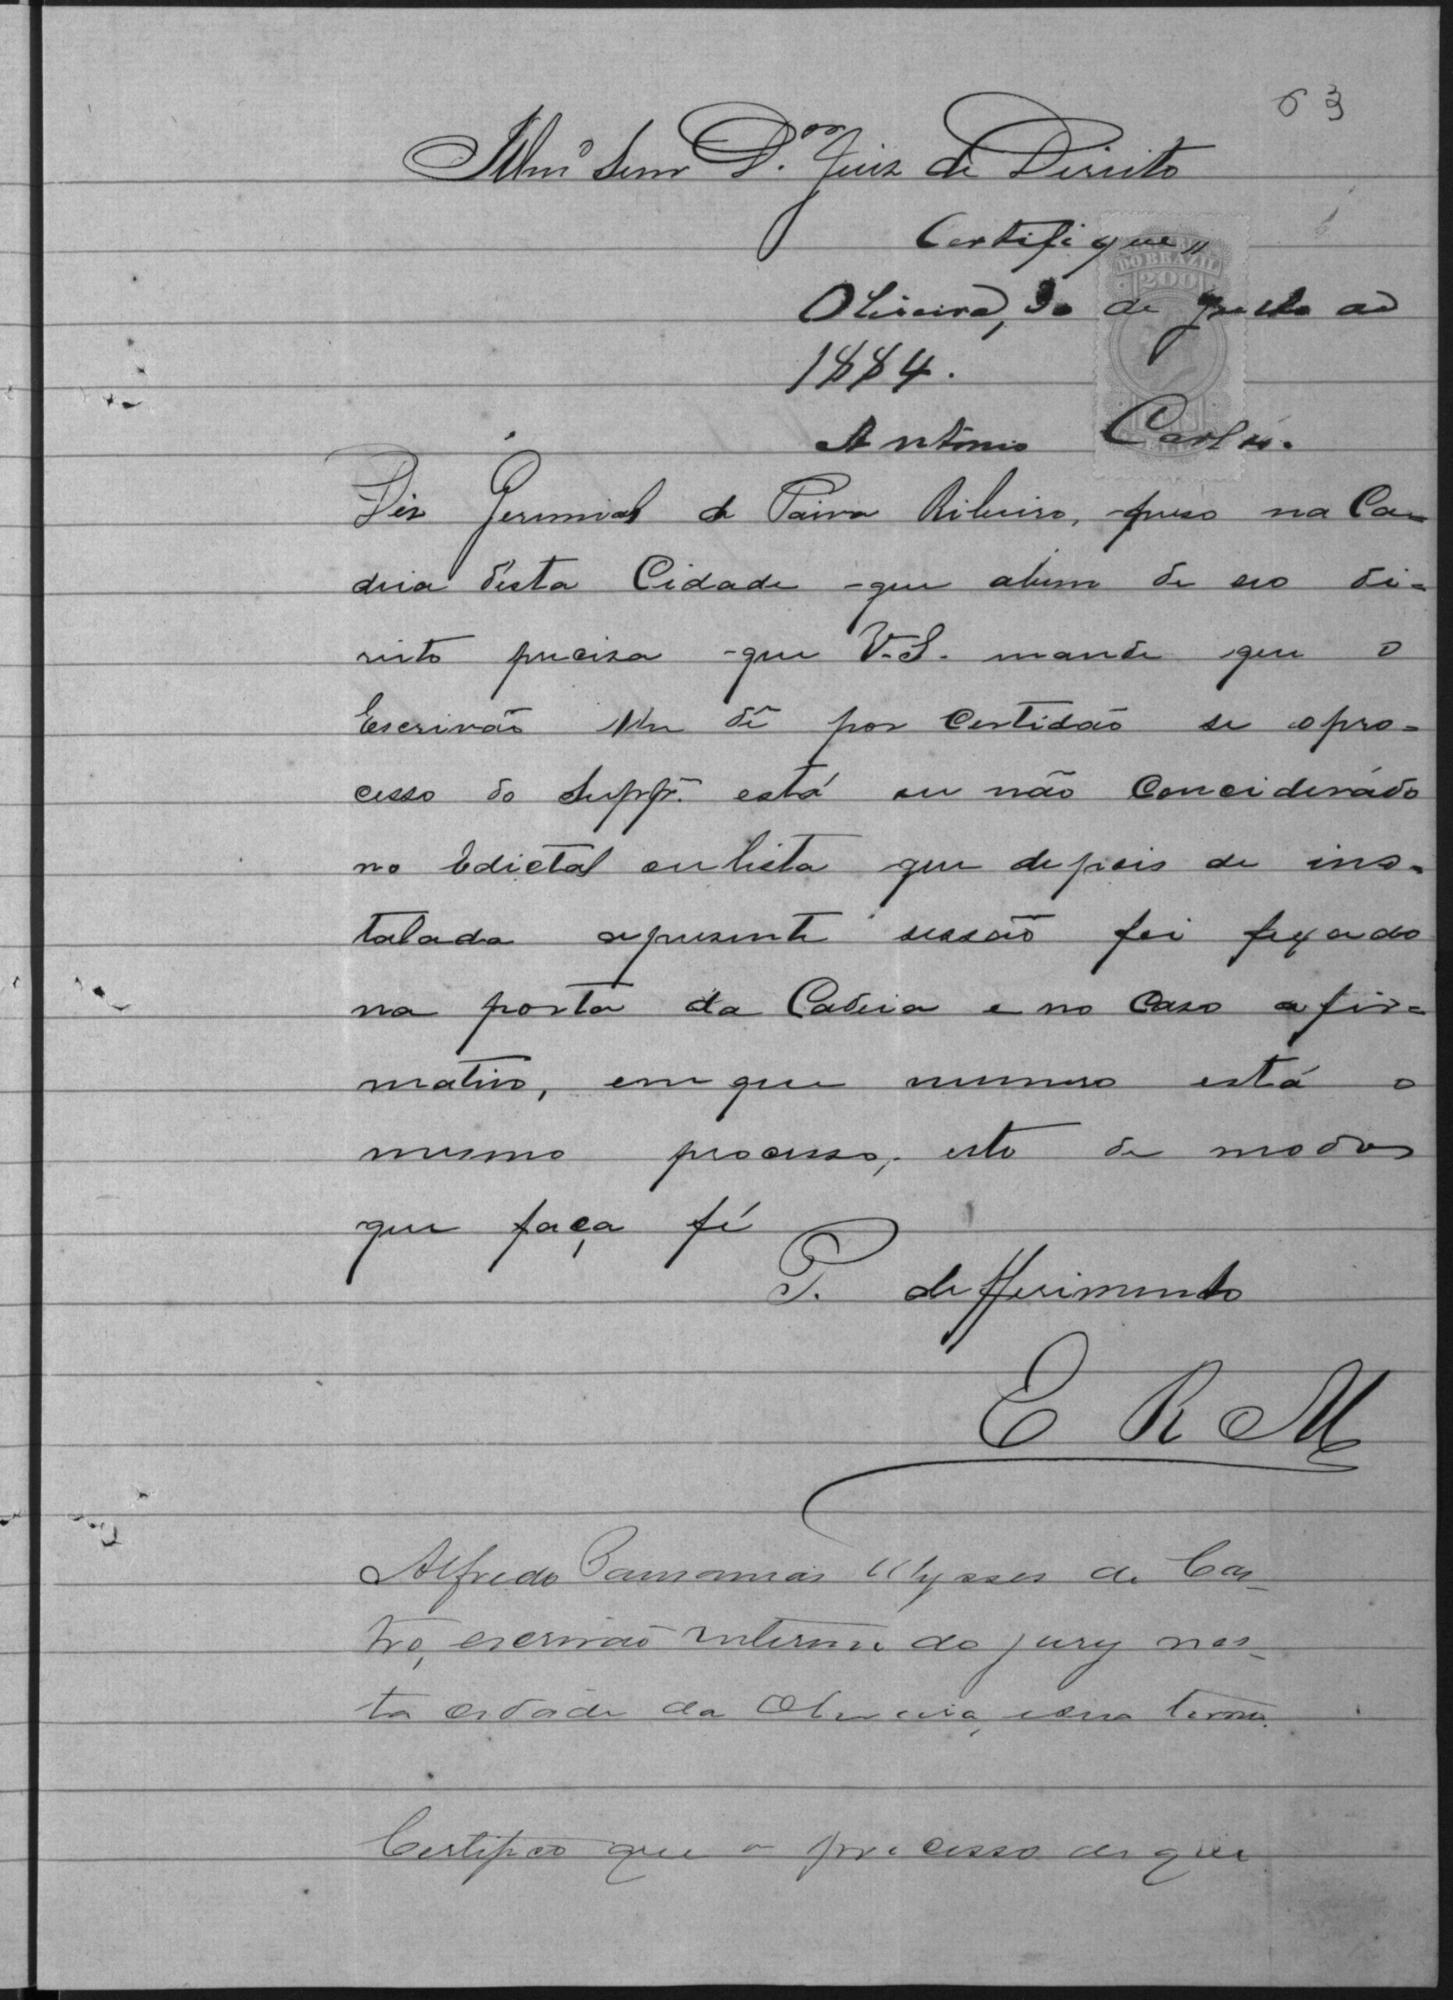 63
Illmº Senr D.or Juiz de Direito
Certifique,,
DO BRAZIL
200
Oliveira, 30 de de
1884.
Antonio Carlos.
Diz Jeremias de Paiva Ribeiro, preso na Ca-
deia desta Cidade que abem de seo di-
reito precisa que V.S. mande que o
Escrivão lhe dê por Certidão se o pro-
cesso do Suppe. está ou não Conciderádo
no Edictal ou lista que depois de ins-
talada apresente sessão foi fixado
na porta da Cadeia e no Caso afir-
mativo, em que numero está o
mesmo processo, isto de modo
que faça fé
P. defferimento
E R M
Alfredo Pausanias Ulysses de Cas-
tro, escrivão interino do jury nes-
ta cidade da Oliveira, e seu termo.
Certifico que o processo de que